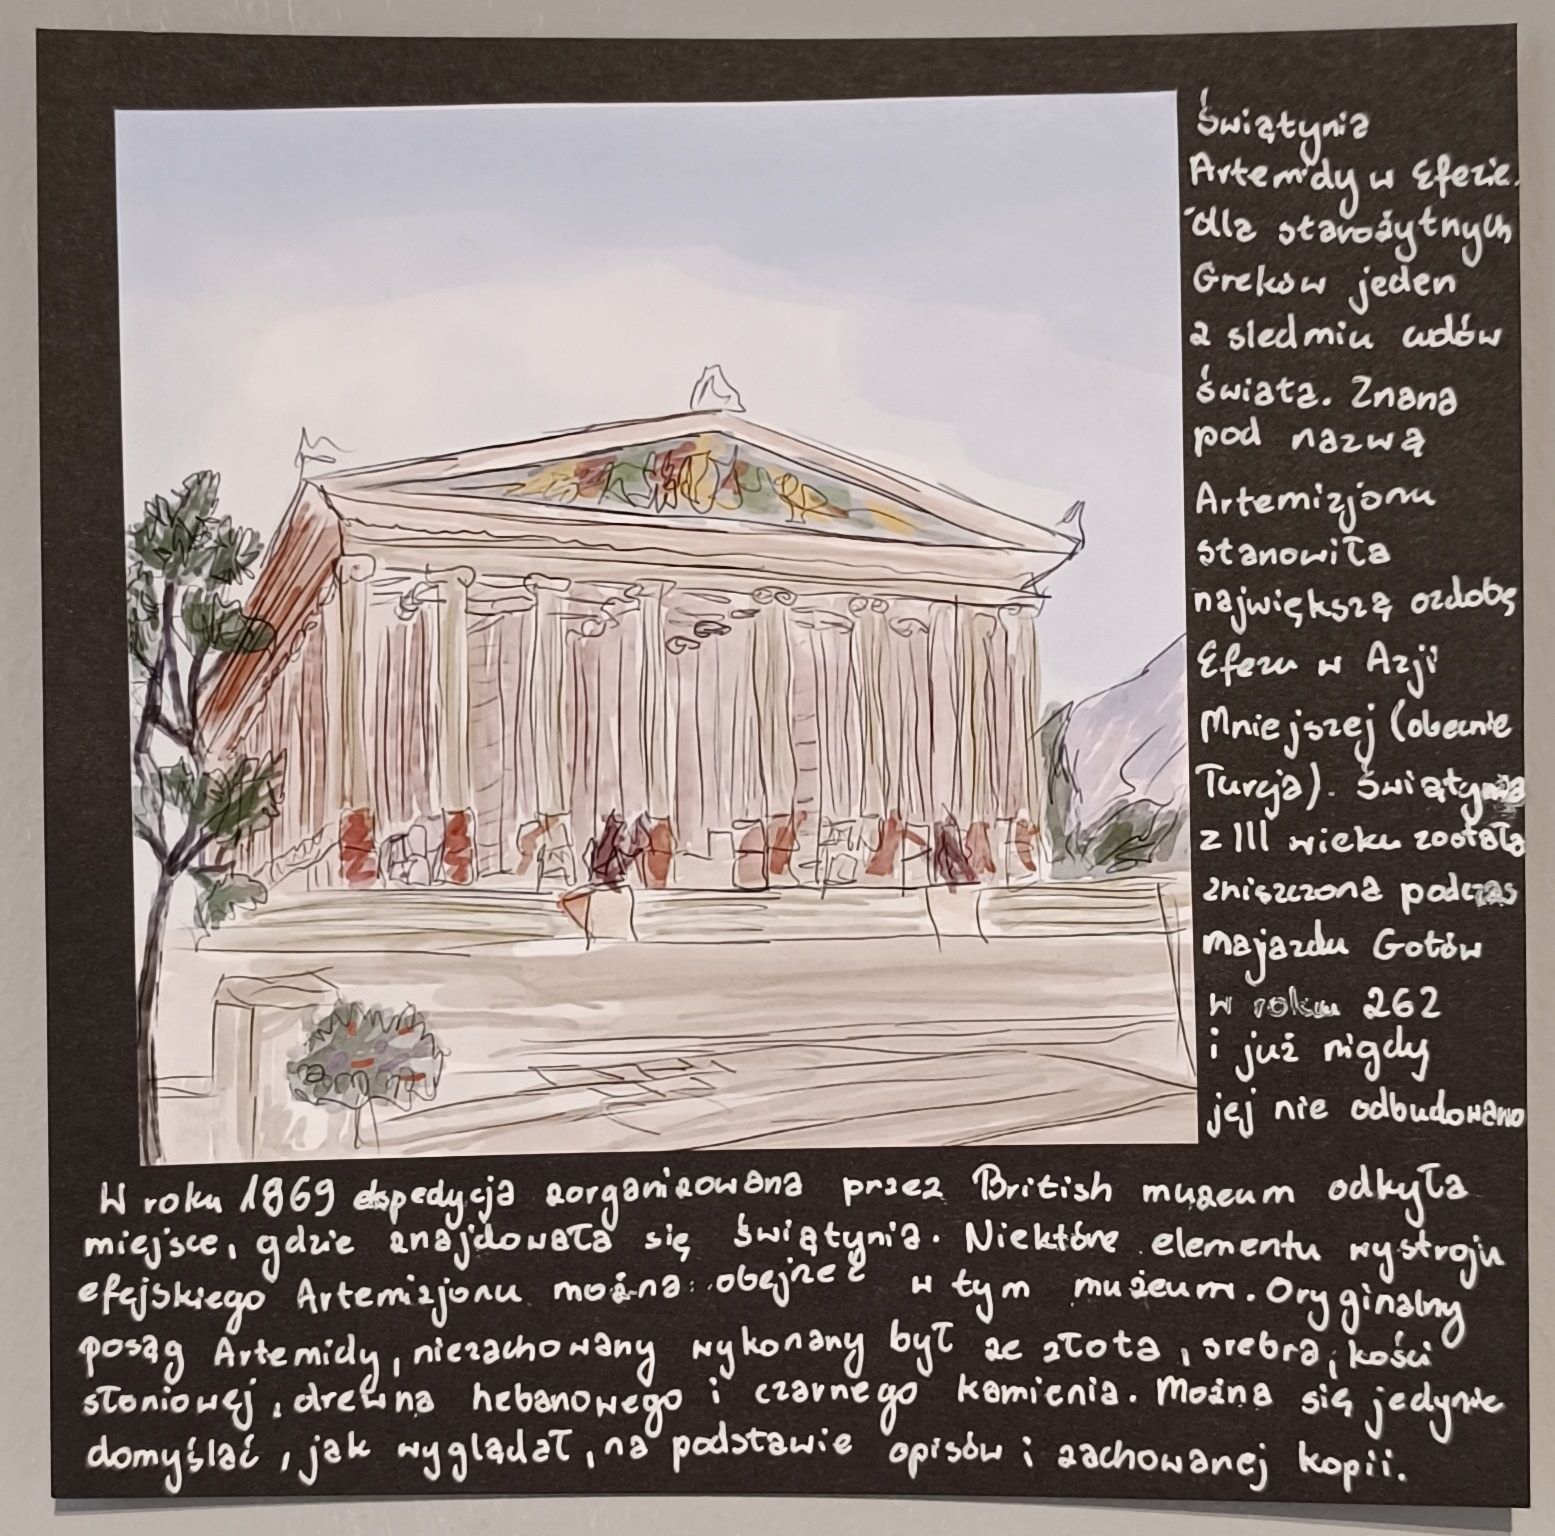 Świątynia
Artemidy w Efezie.
dla starożytnych
Greków jeden
z siedmiu cudów
świata. Znana
pod nazwą
Artemizjonu
stanowiła
największą ozdobę
Efezu w Azji
Mniejszej (obecnie
Turcja). Świątynia
z III wieku została
zniszczona podczas
majazdu Gotów
w roku 262
i już nigdy
jej nie odbudowano
W roku 1869 ekspedycja zorganizowana przez British muzeum odkyła
miejsce, gdzie znajdowała się świątynia. Niektóre elementu wystroju
efejskiego Artemizjonu można obejrzeć w tym muzeum. Oryginalny
posąg Artemidy, niezachowany wykonany był ze złota, srebra, kości
słoniowej, drewna hebanowego i czarnego kamienia. Można się jedynie
domyślać, jak wyglądał, na podstawie opisów i zachowanej kopii.